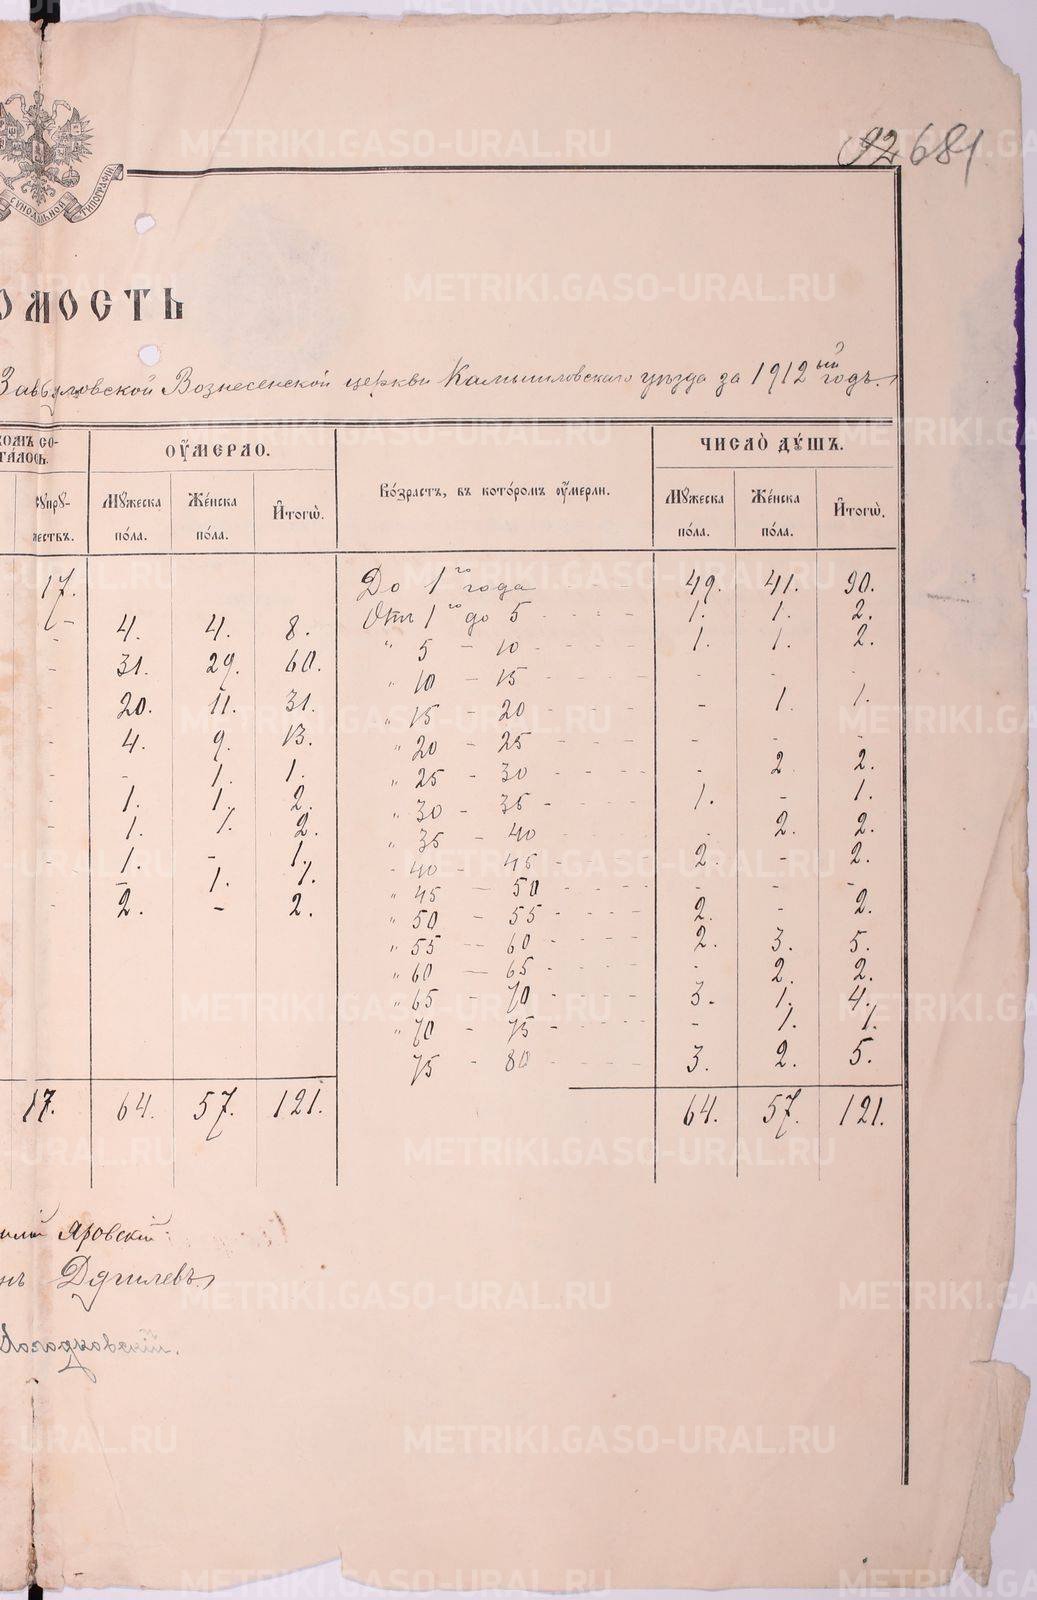 92 681
СѴНОДАЛЬНОЙ ТИПОГРАФІИ
ОМОСТЬ
Вознесенской церкви Камышловскаго уѣзда за 1912ый годъ.
ОУМЕРЛО. ЧИСЛО ДУШЪ.
Мужеска пола. Женска пола. Итогѡ. Возрастъ, въ которомъ оумерли. Мужеска пола. Женска пола. Итогѡ.
17. До 1го года 49. 41. 90.
4. 4. 8. Отъ 1го до 5 1. 1. 2.
" 5 - 10 1. 1. 2.
31. 29. 60. " 10 - 15 - - -
20. 11. 31. " 15 - 20 - 1. 1.
4. 9. 13. " 20 - 25 - - -
- 1. 1. " 25 - 30 - 2. 2.
1. 1. 2. " 30 - 35 1. - 1.
1. 1. 2. " 35 - 40 - 2. 2.
1. - 1. - 40 - 45 2. - 2.
- 1. 1. " 45 - 50 - - -
2. - 2. " 50 - 55 2. - 2.
" 55 - 60 2. 3. 5.
" 60 - 65 - 2. 2.
" 65 - 70 3. 1. 4.
" 70 - 75 - 1. 1.
75 - 80 3. 2. 5.
17. 64. 57. 121. 64. 57. 121.
Яровскій
Дягилевъ
METRIKI.GASO-URAL.RU